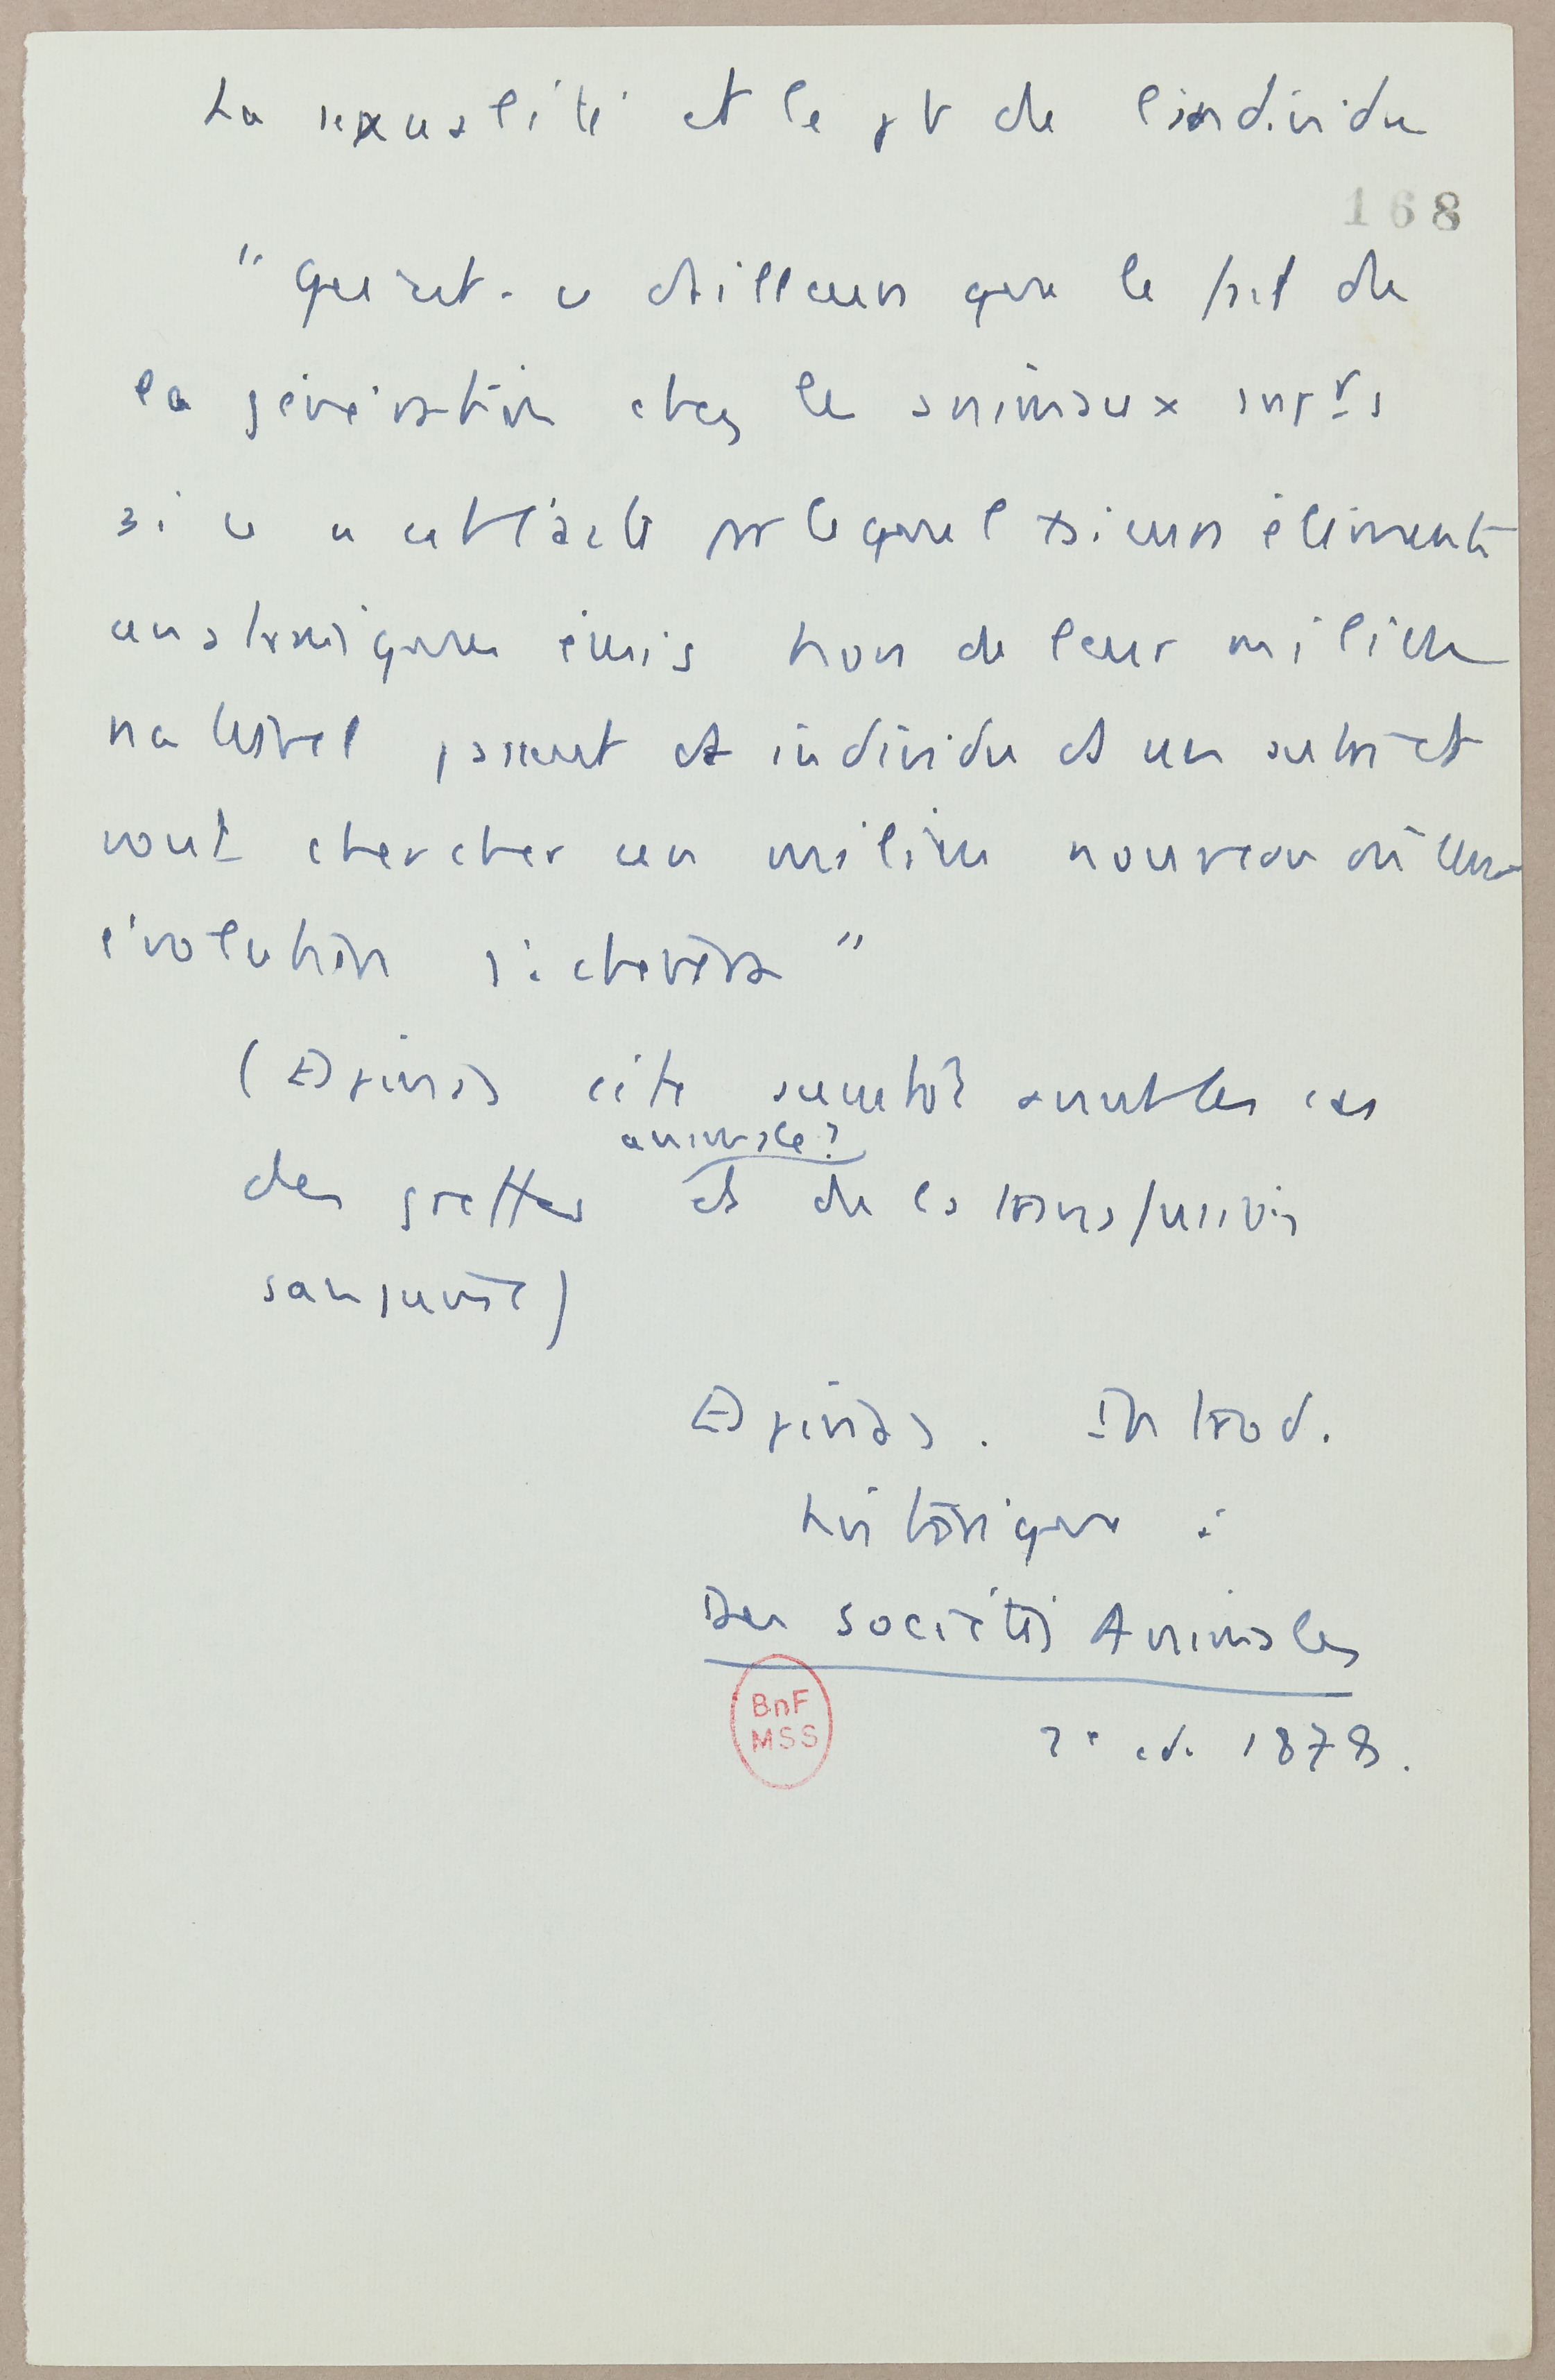 La sexualité et le pb de l'individu
168
" Qu'est-ce d'ailleurs que le fait de
la génération chez les animaux suprs
si ce n'est l'acte par lequel plusieurs éléments
anatomiques émis hors de leur milieu
naturel passent d'individu à un autre et
vont chercher un milieu nouveau où leur
évolution s'achèvera "
(Espinas cite aussitôt avant les cas
animale?
des greffes et de la transfusion
sanguine)
Espinas. Introd.
historique à
Des Sociétés Animales
BnF
MSS
2e ed. 1878.